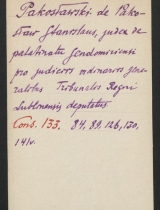 Pakosławski de Pako-
sław Stanislaus, judex de
palatinatu Sendomiriensi
pro judiciis ordinariis gene-
ralibus Tribunalis Regni
Lublinensis deputatus
Cons. 133. 84, 89, 126, 130,
141v.